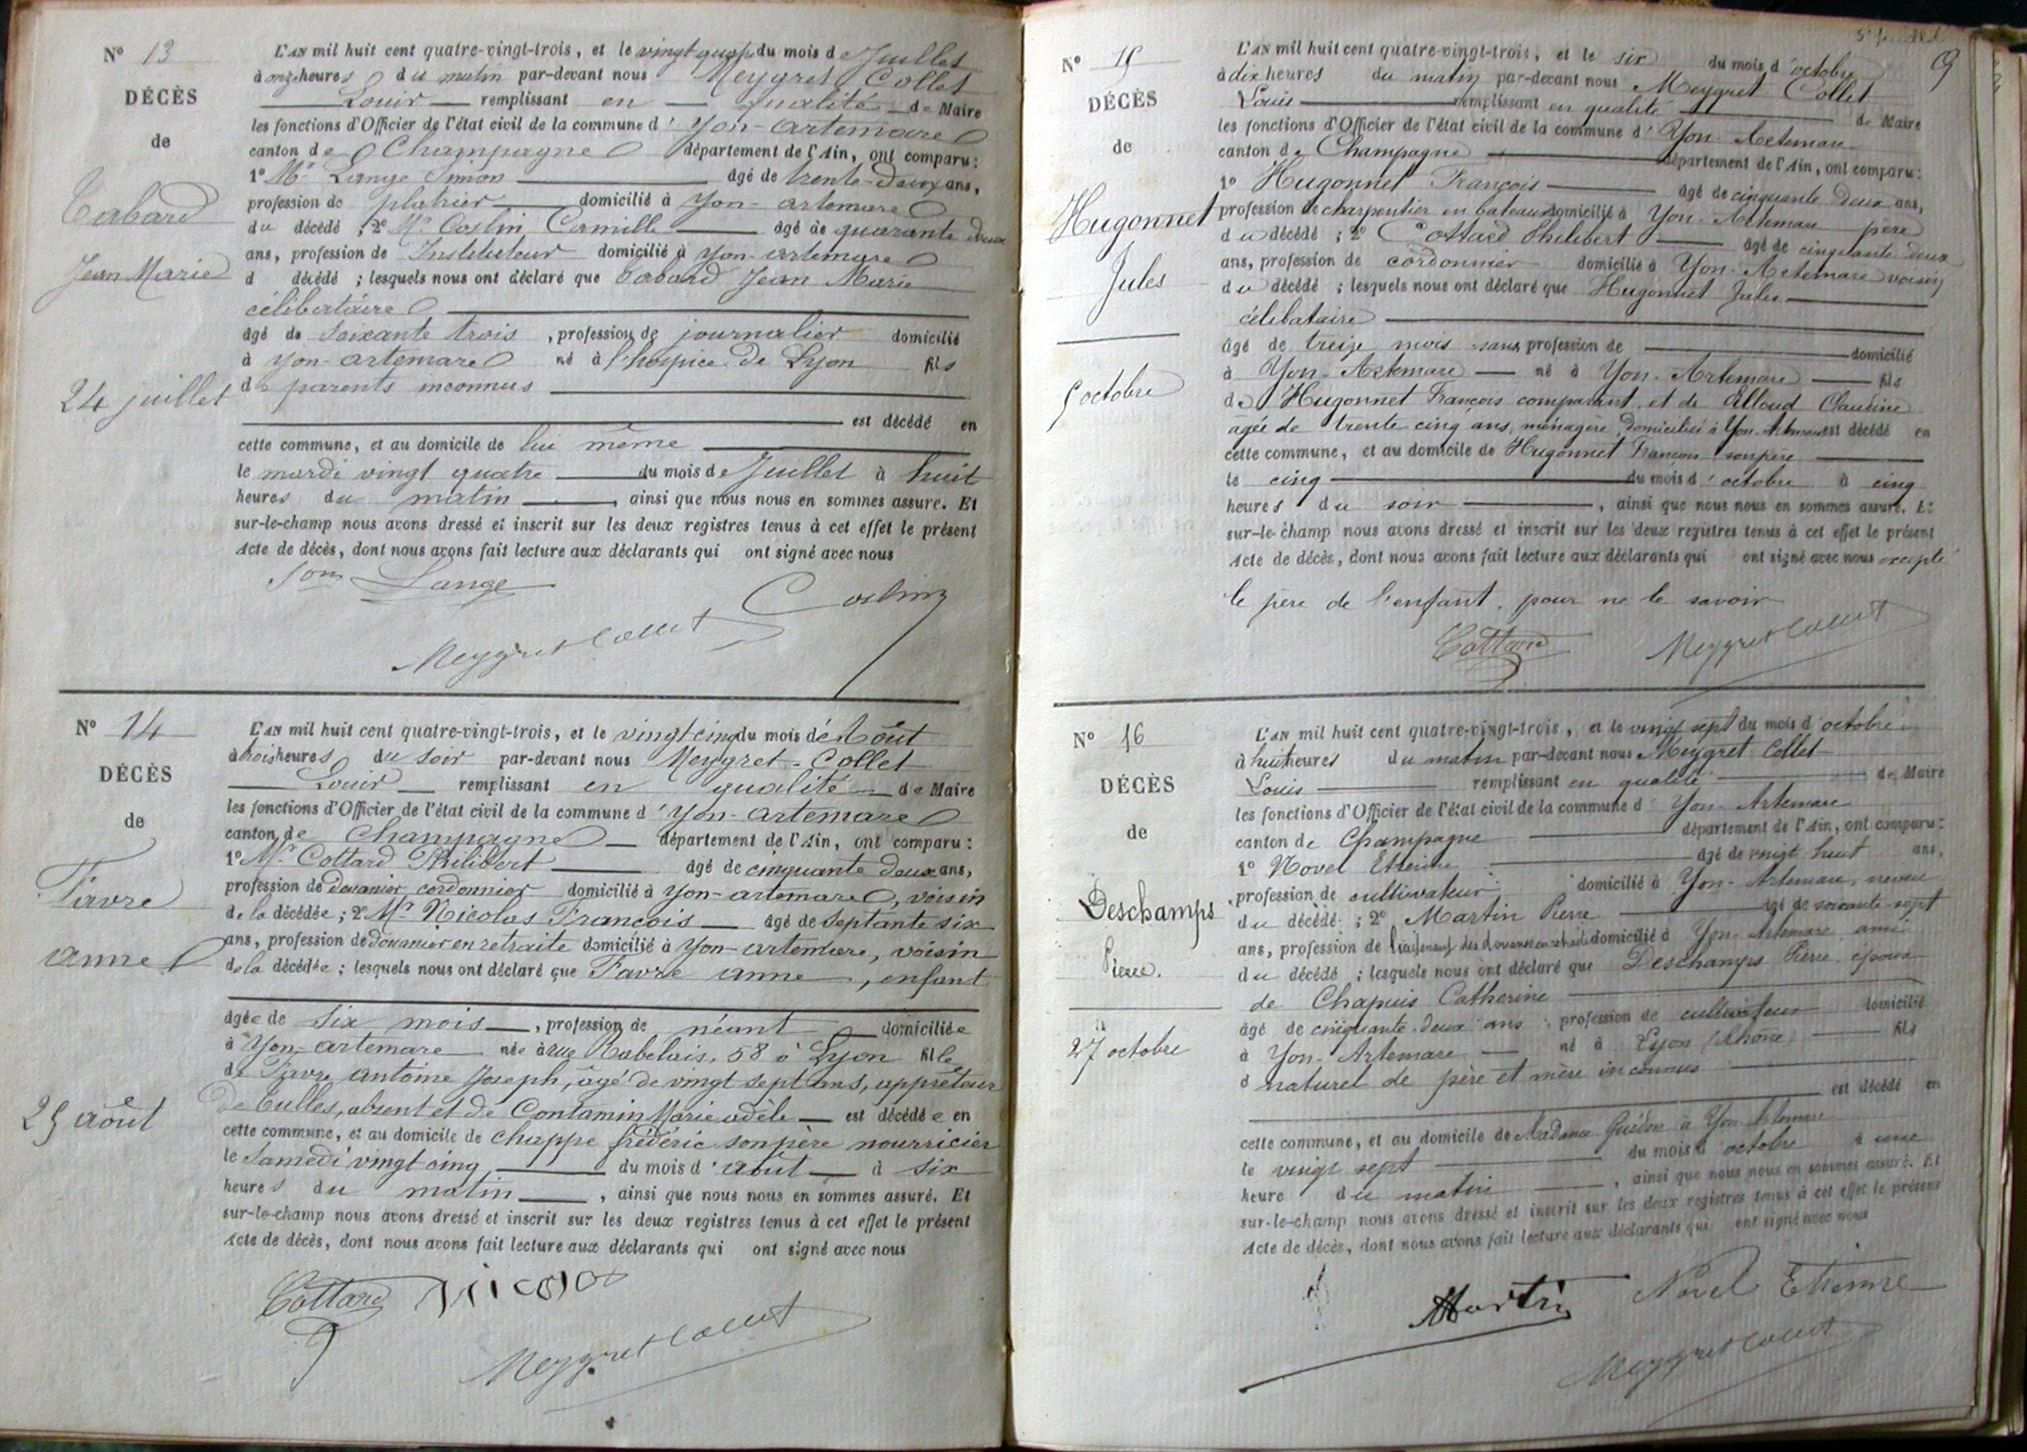 N° 13
DÉCÈS
de
Tabard
Jean Marie
24 juillet
L'AN mil huit cent quatre-vingt-trois, et le vingt quatre du mois de Juillet
à onze heures du matin par-devant nous Meygret Collet
Louis remplissant en qualité de Maire
les fonctions d'Officier de l'état civil de la commune d'Yon-artemare
canton de Champagne département de l'Ain, ont comparu :
1° Mr Lange Simon âgé de trente-deux ans,
profession de platrier domicilié à Yon-artemare
du décédé ; 2° Mr Costin Camille âgé de quarante deux
ans, profession de Instituteur domicilié à Yon-artemare
d décédé ; lesquels nous ont déclaré que Tabard Jean Marie
célibertaire
âgé de soixante trois , profession de journalier domicilié
à Yon-artemare né à l'hospice de Lyon fils
de parents inconnus
est décédé en
cette commune, et au domicile de lui même
le mardi vingt quatre du mois de Juillet à huit
heures du matin , ainsi que nous nous en sommes assuré. Et
sur-le-champ nous avons dressé et inscrit sur les deux registres tenus à cet effet le présent
Acte de décès, dont nous avons fait lecture aux déclarants qui ont signé avec nous
Lange
Meygret Collet
N° 14
DÉCÈS
de
Favre
anne
25 août
L'AN mil huit cent quatre-vingt-trois, et le vingt cinq du mois d'Août
à trois heures du soir par-devant nous Meygret-Collet
Louis remplissant en qualité de Maire
les fonctions d'Officier de l'état civil de la commune d'Yon-artemare
canton de Champagne département de l'Ain, ont comparu :
1° Mr Cottard Philibert âgé de cinquante deux ans,
profession de cordonnier domicilié à Yon-artemare, voisin
de la décédée ; 2° Mr Nicolas François âgé de septante six
ans, profession de douanier en retraite domicilié à Yon-artemare, voisin
de la décédée ; lesquels nous ont déclaré que Favre anne, enfant
âgée de six mois , profession de néant domiciliée
à Yon-artemare née à rue Rabelais, 58 à Lyon fille
de Favre antoine Joseph, âgé de vingt sept ans, apprêteur
de tulles, absent et de Contamin Marie adèle est décédée en
cette commune, et au domicile de Chappe frédéric son père nourricier
le Samedi vingt cinq du mois d'août à six
heures du matin , ainsi que nous nous en sommes assuré. Et
sur-le-champ nous avons dressé et inscrit sur les deux registres tenus à cet effet le présent
Acte de décès, dont nous avons fait lecture aux déclarants qui ont signé avec nous
Cottard Nicolas
Meygret Collet
9
N° 15
DÉCÈS
de
Hugonnet
Jules
5 octobre
L'AN mil huit cent quatre-vingt-trois, et le six du mois d'octobre
à dix heures du matin par-devant nous Meygret Collet
Louis remplissant en qualité de Maire
les fonctions d'Officier de l'état civil de la commune d'Yon-Artemare
canton de Champagne département de l'Ain, ont comparu :
1° Hugonnet François âgé de cinquante deux ans,
profession de charpentier en bateaux domicilié à Yon-Artemare père
du décédé ; 2° Cottard Philibert âgé de cinquante deux
ans, profession de cordonnier domicilié à Yon-Artemare voisin
du décédé ; lesquels nous ont déclaré que Hugonnet Jules
célibataire
âgé de treize mois sans profession de domicilié
à Yon-Artemare né à Yon-Artemare fils
de Hugonnet François comparant et de Alloud Claudine
agée de trente cinq ans, ménagère, domiciliée à Yon-Artemare est décédé en
cette commune, et au domicile de Hugonnet François son père
le cinq du mois d'octobre à cinq
heures du soir , ainsi que nous nous en sommes assuré. Et
sur-le-champ nous avons dressé et inscrit sur les deux registres tenus à cet effet le présent
Acte de décès, dont nous avons fait lecture aux déclarants qui ont signé avec nous excepté
le père de l'enfant, pour ne le savoir
Cottard Meygret Collet
N° 16
DÉCÈS
de
Deschamps
Pierre.
27 octobre
L'AN mil huit cent quatre-vingt-trois, et le vingt sept du mois d'octobre
à huit heures du matin par-devant nous Meygret Collet
Louis remplissant en qualité de Maire
les fonctions d'Officier de l'état civil de la commune d'Yon-Artemare
canton de Champagne département de l'Ain, ont comparu :
1° Novel Etienne âgé de vingt huit ans,
profession de cultivateur domicilié à Yon-Artemare, neveu
du décédé ; 2° Martin Pierre âgé de soixante sept
ans, profession de domicilié à Yon-Artemare ami
du décédé ; lesquels nous ont déclaré que Deschamps Pierre époux
de Chapuis Catherine
âgé de cinquante-deux ans, profession de cultivateur domicilié
à Yon-Artemare né à Lyon (Rhône) fils
d naturel de père et mère inconnus
est décédé en
cette commune, et au domicile de Madame à Yon-Artemare
le vingt sept du mois d'octobre à une
heure du matin , ainsi que nous nous en sommes assuré. Et
sur-le-champ nous avons dressé et inscrit sur les deux registres tenus à cet effet le présent
Acte de décès, dont nous avons fait lecture aux déclarants qui ont signé avec nous
Martin Novel Etienne
Meygret Collet